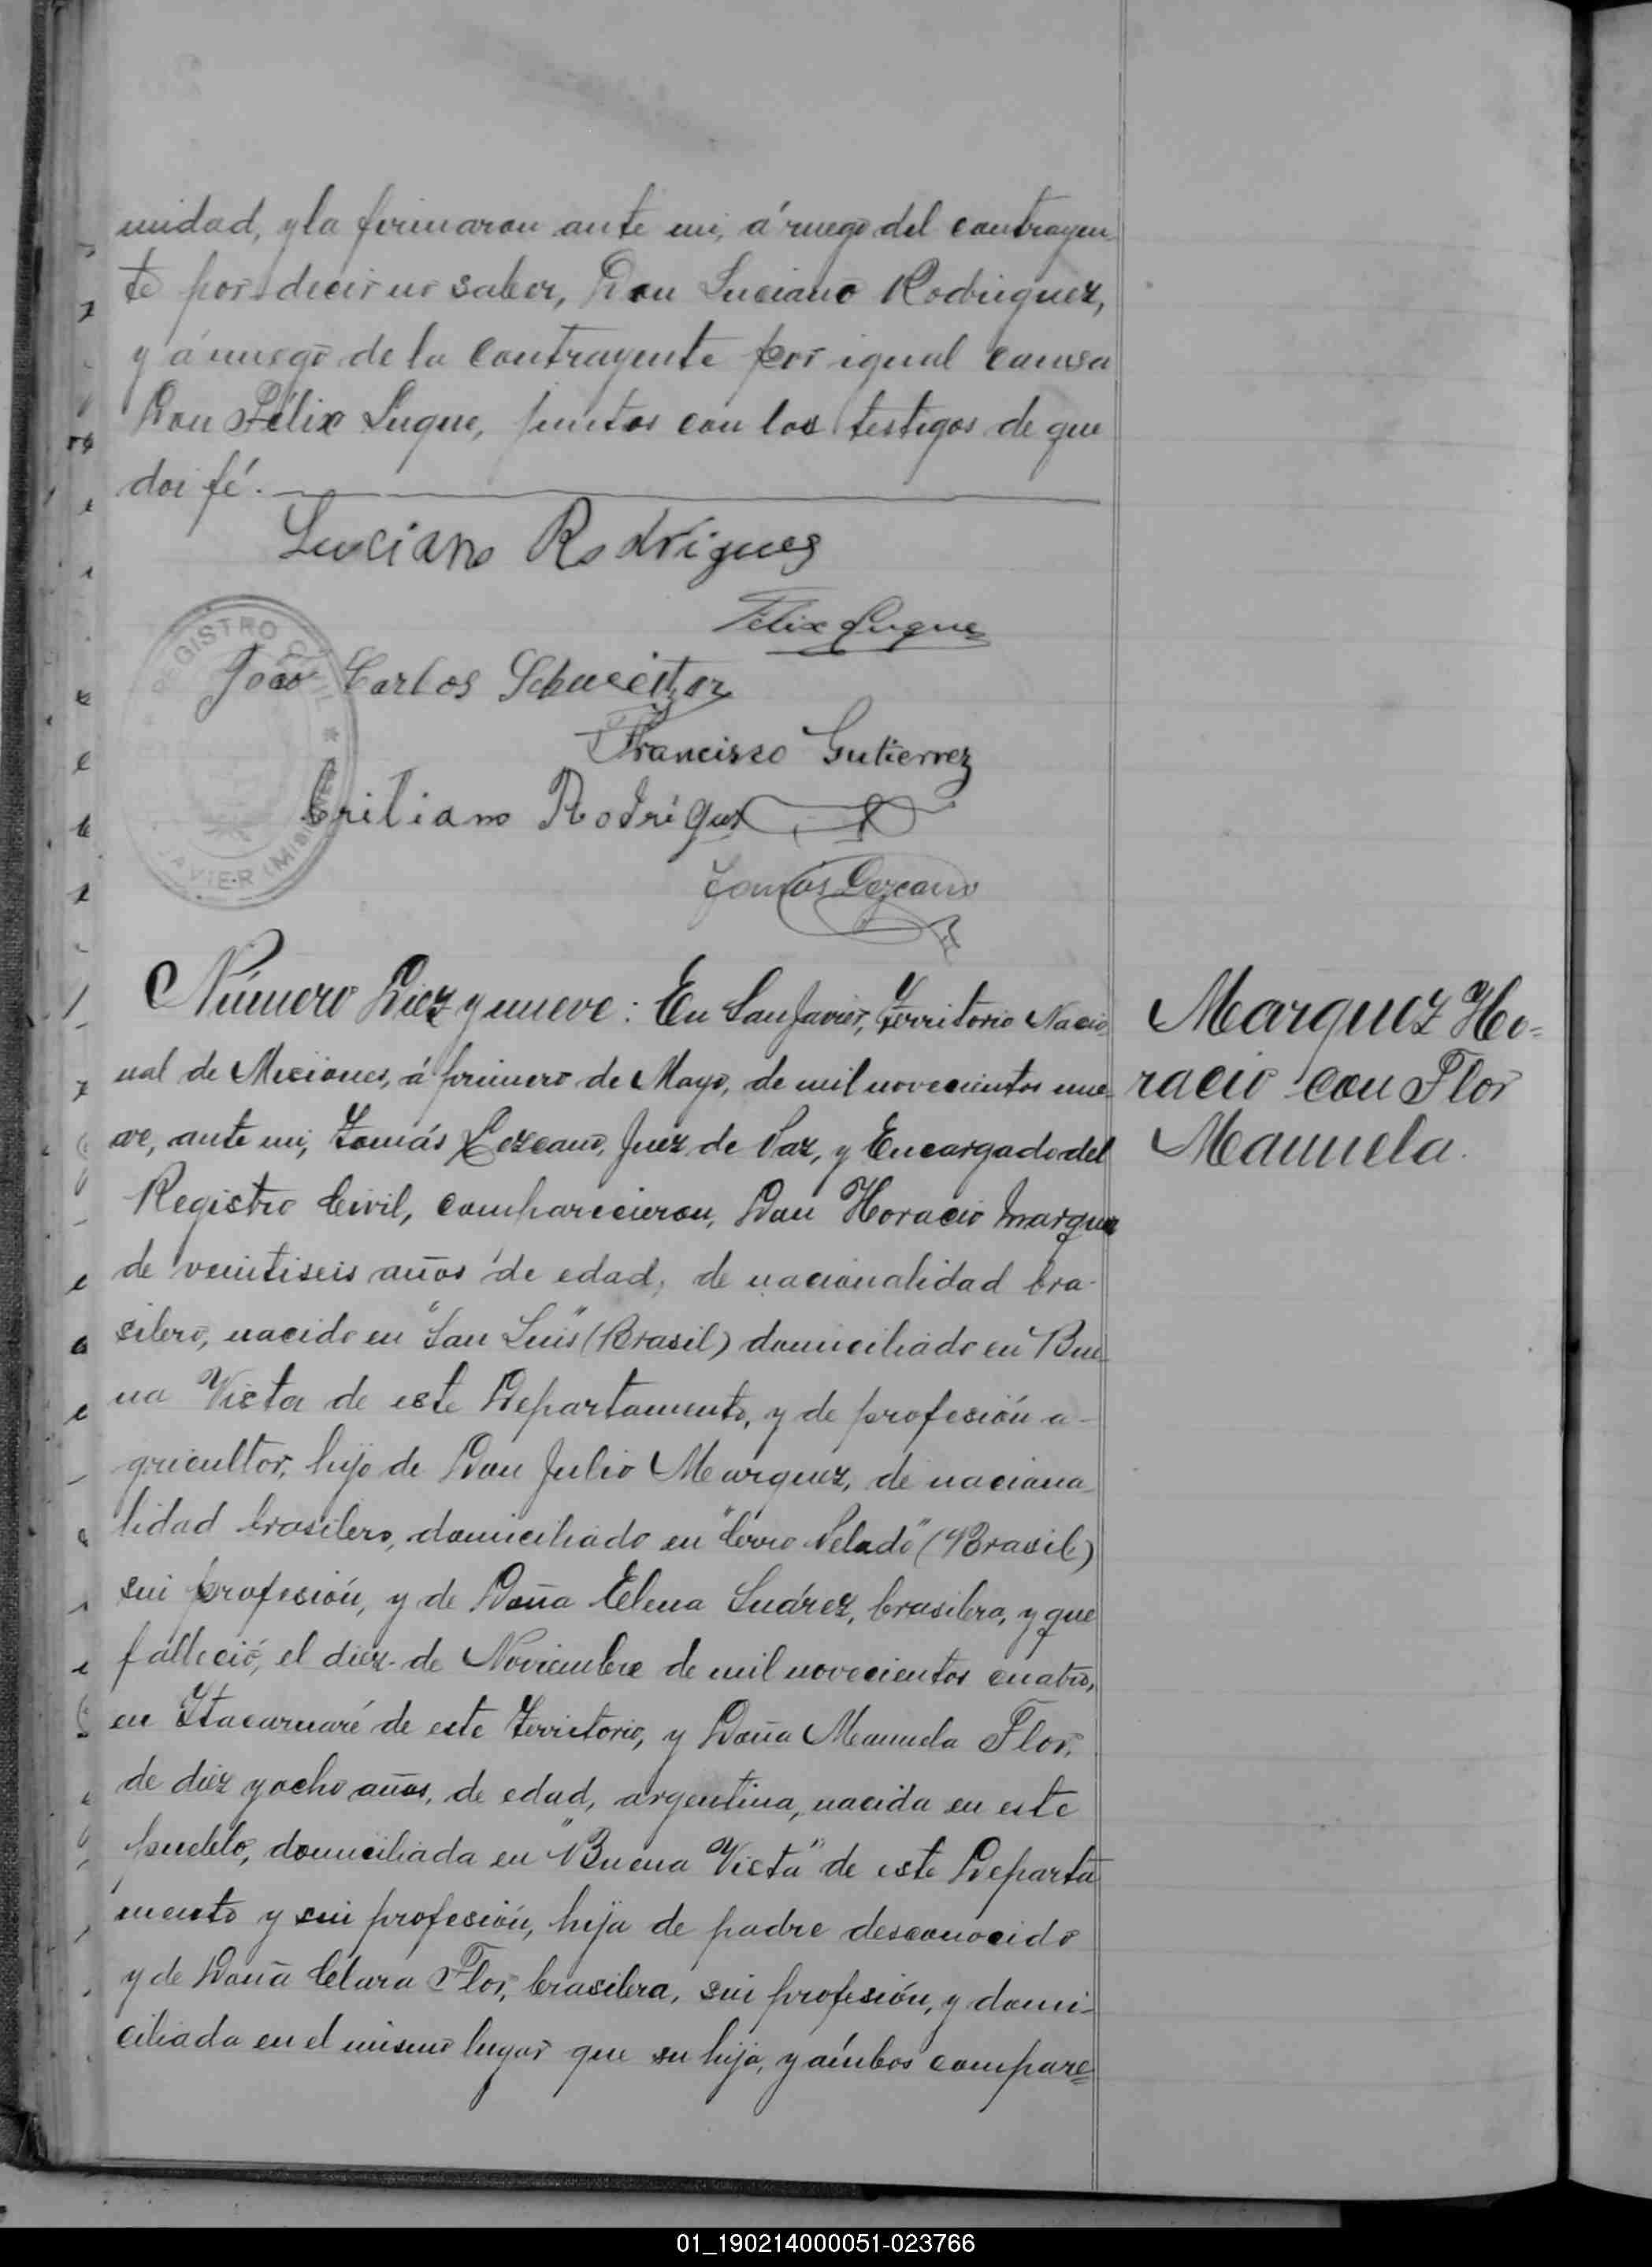 unidad, y la firmaron ante mi, á ruego del contrayen-
te por decir no saber, Don Luciano Rodriguez,
y á ruego de la contrayente por igual causa
Don Félix Luque, juntos con los testigos de que
doi fé.
Luciano Rodrigues
Felix Luque
REGISTRO CIVIL
João Carlos Schueitzer
Francisco Gutierrez
Rodríguez
JAVIER (MISIONES)
Tomás Lezcano
Número Diez y nueve: En San Javier, Territorio Nacio
nal de Miciones, á primero de Mayo, de mil novecientos nue-
ve, ante mi, Tomás Lezcano, Juez de Paz, y Encargado del
Registro Civil, comparecieron, Don Horacio Marquez
de veintiseis años de edad, de nacionalidad bra-
silero, nacido en "San Luis" (Brasil) domiciliado en Bue-
na Vista de este Departamento, y de profesión a-
gricultor, hijo de Don Julio Marquez, de naciona-
lidad brasilero, domiciliado en "Cerro Pelado" (Brasil)
sin profesión, y de Doña Elena Suárez, brasilera, y que
falleció, el diez de Noviembre de mil novecientos cuatro,
en Itacaruaré de este Territorio, y Doña Manuela Flor,
de diez y ocho años, de edad, argentina, nacida en este
pueblo, domiciliada en "Buena Vista" de este Departa
mento y sin profesión, hija de padre desconocido
y de Doña Clara Flor, brasilera, sin profesión, y domi-
ciliada en el mismo lugar que su hija, y ámbos compare=
Marquez Ho=
racio con Flor
Manuela.
01_190214000051-023766